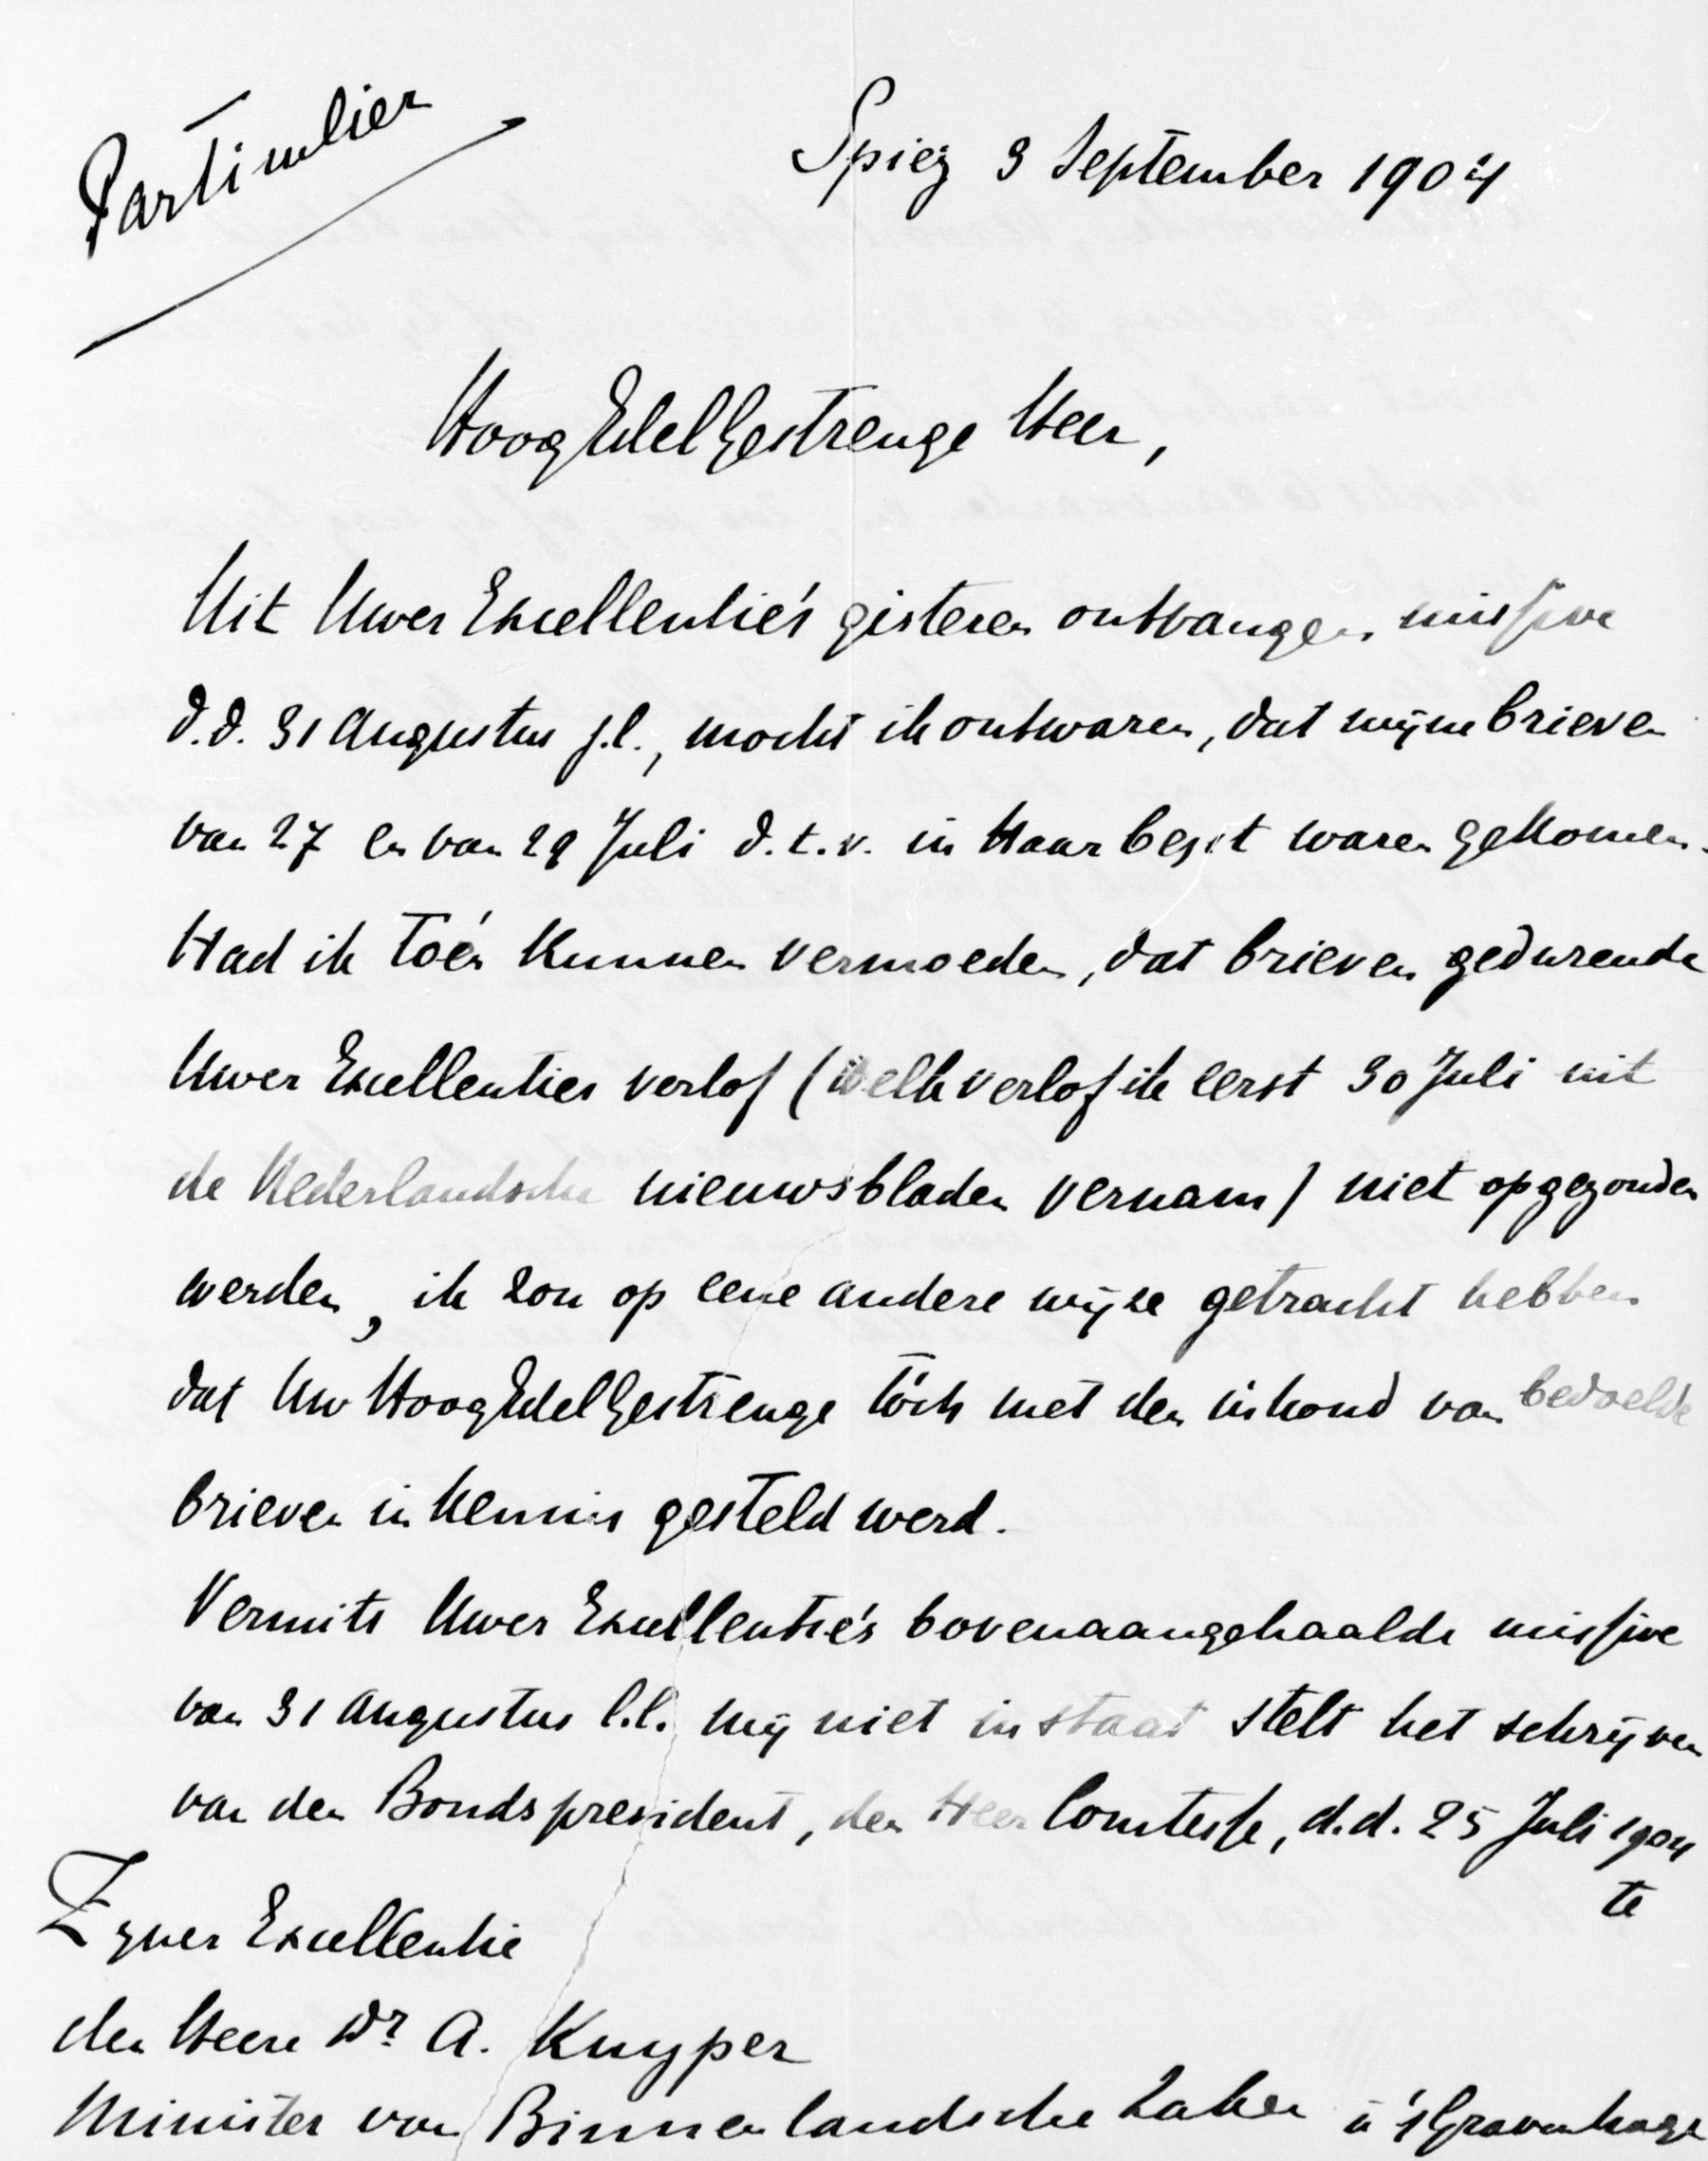 Particulier
Spiez 3 September 1904
HoogEdelGestrenge Heer,
Uit Uwer Excellentie's gisteren ontvangen missive
d.d. 31 Augustus j.l., mocht ik ontwaren, dat mijne brieven
van 27 en van 29 Juli d.t.v. in Haar bezit waren gekomen.
Had ik toén kunnen vermoeden, dat brieven gedurende
Uwer Excellenties verlof (welk verlof ik eerst 30 Juli uit
de Nederlandsche nieuwsbladen vernam) niet opgezonden
werden, ik zou op eene andere wijze getracht hebben
dat Uw HoogEdelGestrenge tòch met den inhoud van bedoelde
brieven in kennis gesteld werd.
Vermits Uwer Excellentie's bovenaangehaalde missive
van 31 Augustus l.l. mij niet in staat stelt het schrijven
van den Bondspresident, den Heer Comtesse, d.d. 25 Juli 1904
te
Zyner Excellentie
den Heere Dr A. Kuyper
Minister van Binnenlandsche Zaken à 's Gravenhage